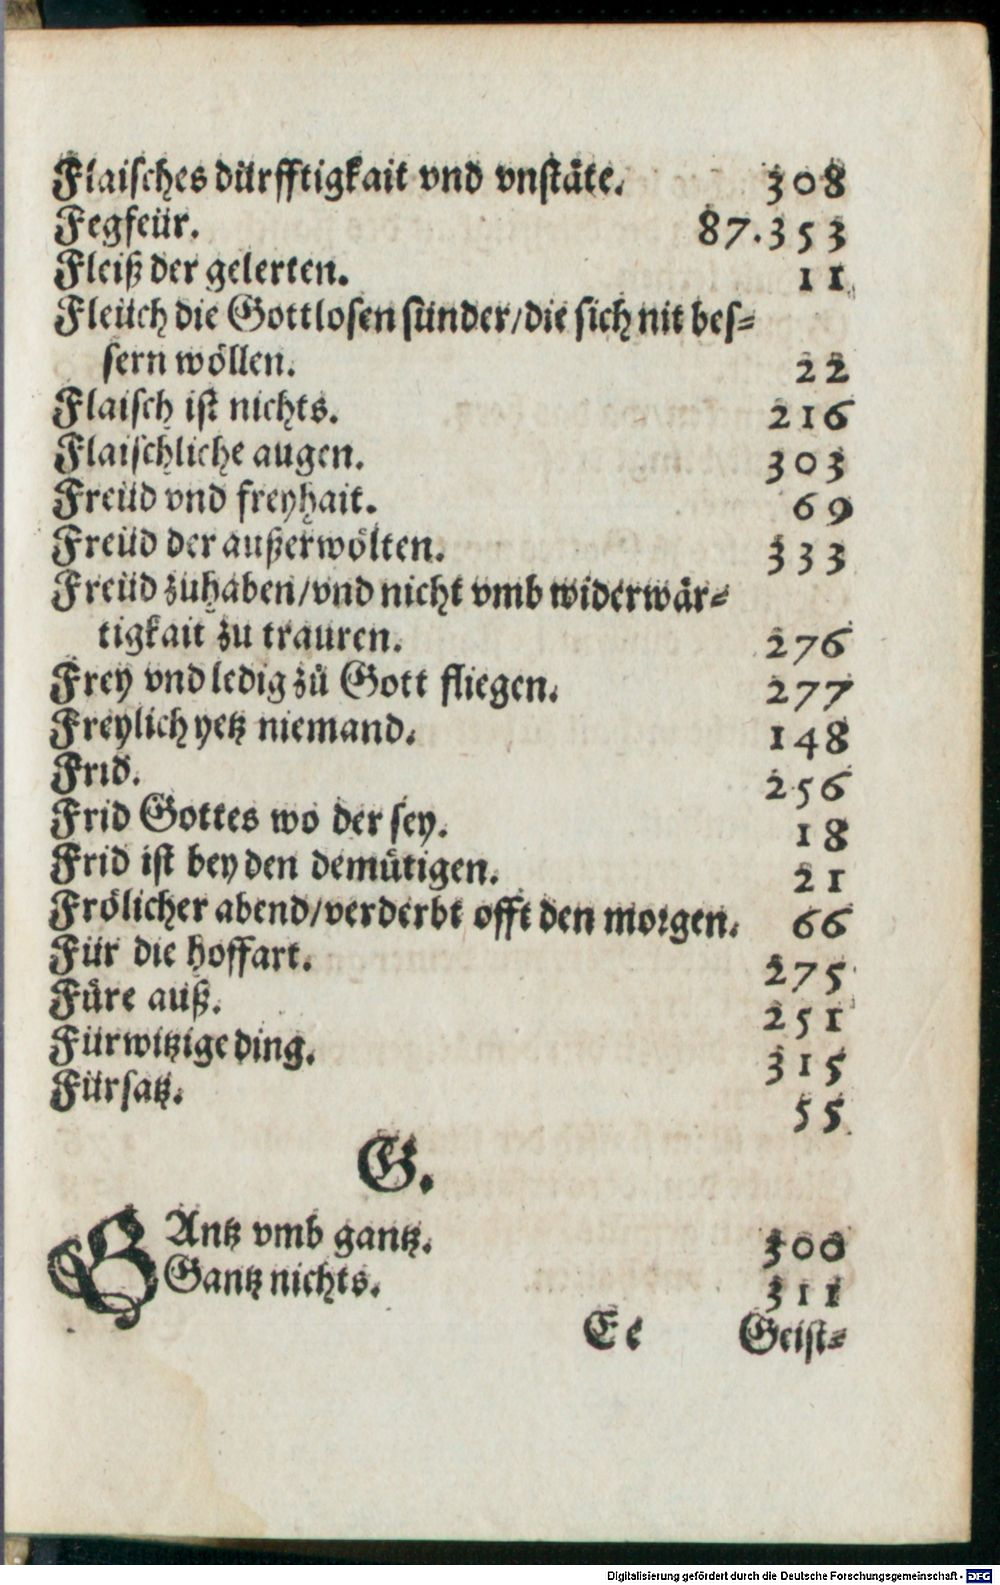 Flaisches dürfftigkait vnd vnstäte. 308
Fegfeür. 87.353
Fleiß der gelerten. 11
Fleüch die Gottlosen sünder/die sich nit bes⸗
sern wöllen. 22
Flaisch ist nichts. 216
Flaischliche augen. 303
Freüd vnd freyhait. 69
Freüd der außerwölten. 333
Freüd zuhaben/vnd nicht vmb widerwär⸗
tigkait zu trauren. 276
Frey vnd ledig zů Gott fliegen. 277
Freylich yetz niemand. 148
Frid. 256
Frid Gottes wo der sey. 18
Frid ist bey den demütigen. 21
Frölicher abend/verderbt offt den morgen. 66
Für die hoffart. 275
Füre auß. 251
Fürwitzige ding. 315
Fürsatz. 55
G.
GAntz vmb gantz. 300
Gantz nichts. 311
Ee Geist⸗
Digitalisierung gefördert durch die Deutsche Forschungsgemeinschaft - DFG